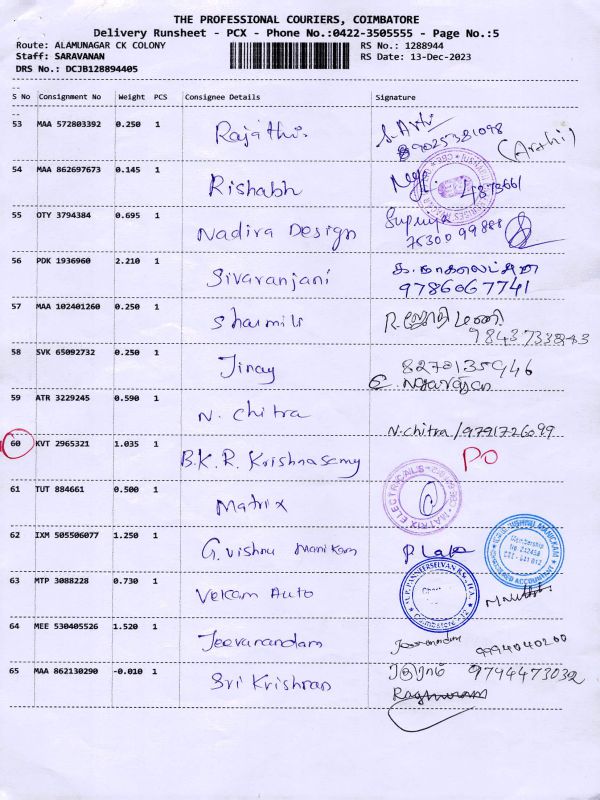 THE PROFESSIONAL COURIERS, COIMBATORE
Delivery Runsheet - PCX - Phone No.:0422-3505555 - Page No.:5
Route: ALAMUNAGAR CK COLONY RS No.: 1288944
Staff: SARAVANAN RS Date: 13-Dec-2023
DRS No.: DCJB128894405
S No Consignment No Weight PCS Consignee Details Signature
53 MAA 572803392 0.250 1 Rajathi. S. Arthi
9025381098 (Arthi)
54 MAA 862697673 0.145 1 Rishabh
55 OTY 3794384 0.695 1 Nadira Design Supriya
56 PDK 1936960 2.210 1 Sivaranjani
9786067741
57 MAA 102401260 0.250 1 Sharmili R. ஜோதிமணி
58 SVK 65092732 0.250 1 Jinay 8270135946
59 ATR 3229245 0.590 1 N. Chitra N. chitra/9791726099
60 KVT 2965321 1.035 1 B.K.R. Krishnasamy PO
61 TUT 884661 0.500 1 Matrix MATRIX ELECTRICALS
62 IXM 505506077 1.250 1 G. Vishnu Manikam P Lata
63 MTP 3088228 0.730 1 Velcam Auto
64 MEE 530405526 1.520 1 Jeevanandam 9994040200
65 MAA 862130290 -0.010 1 Sri Krishnan 9794473032
Raghuram